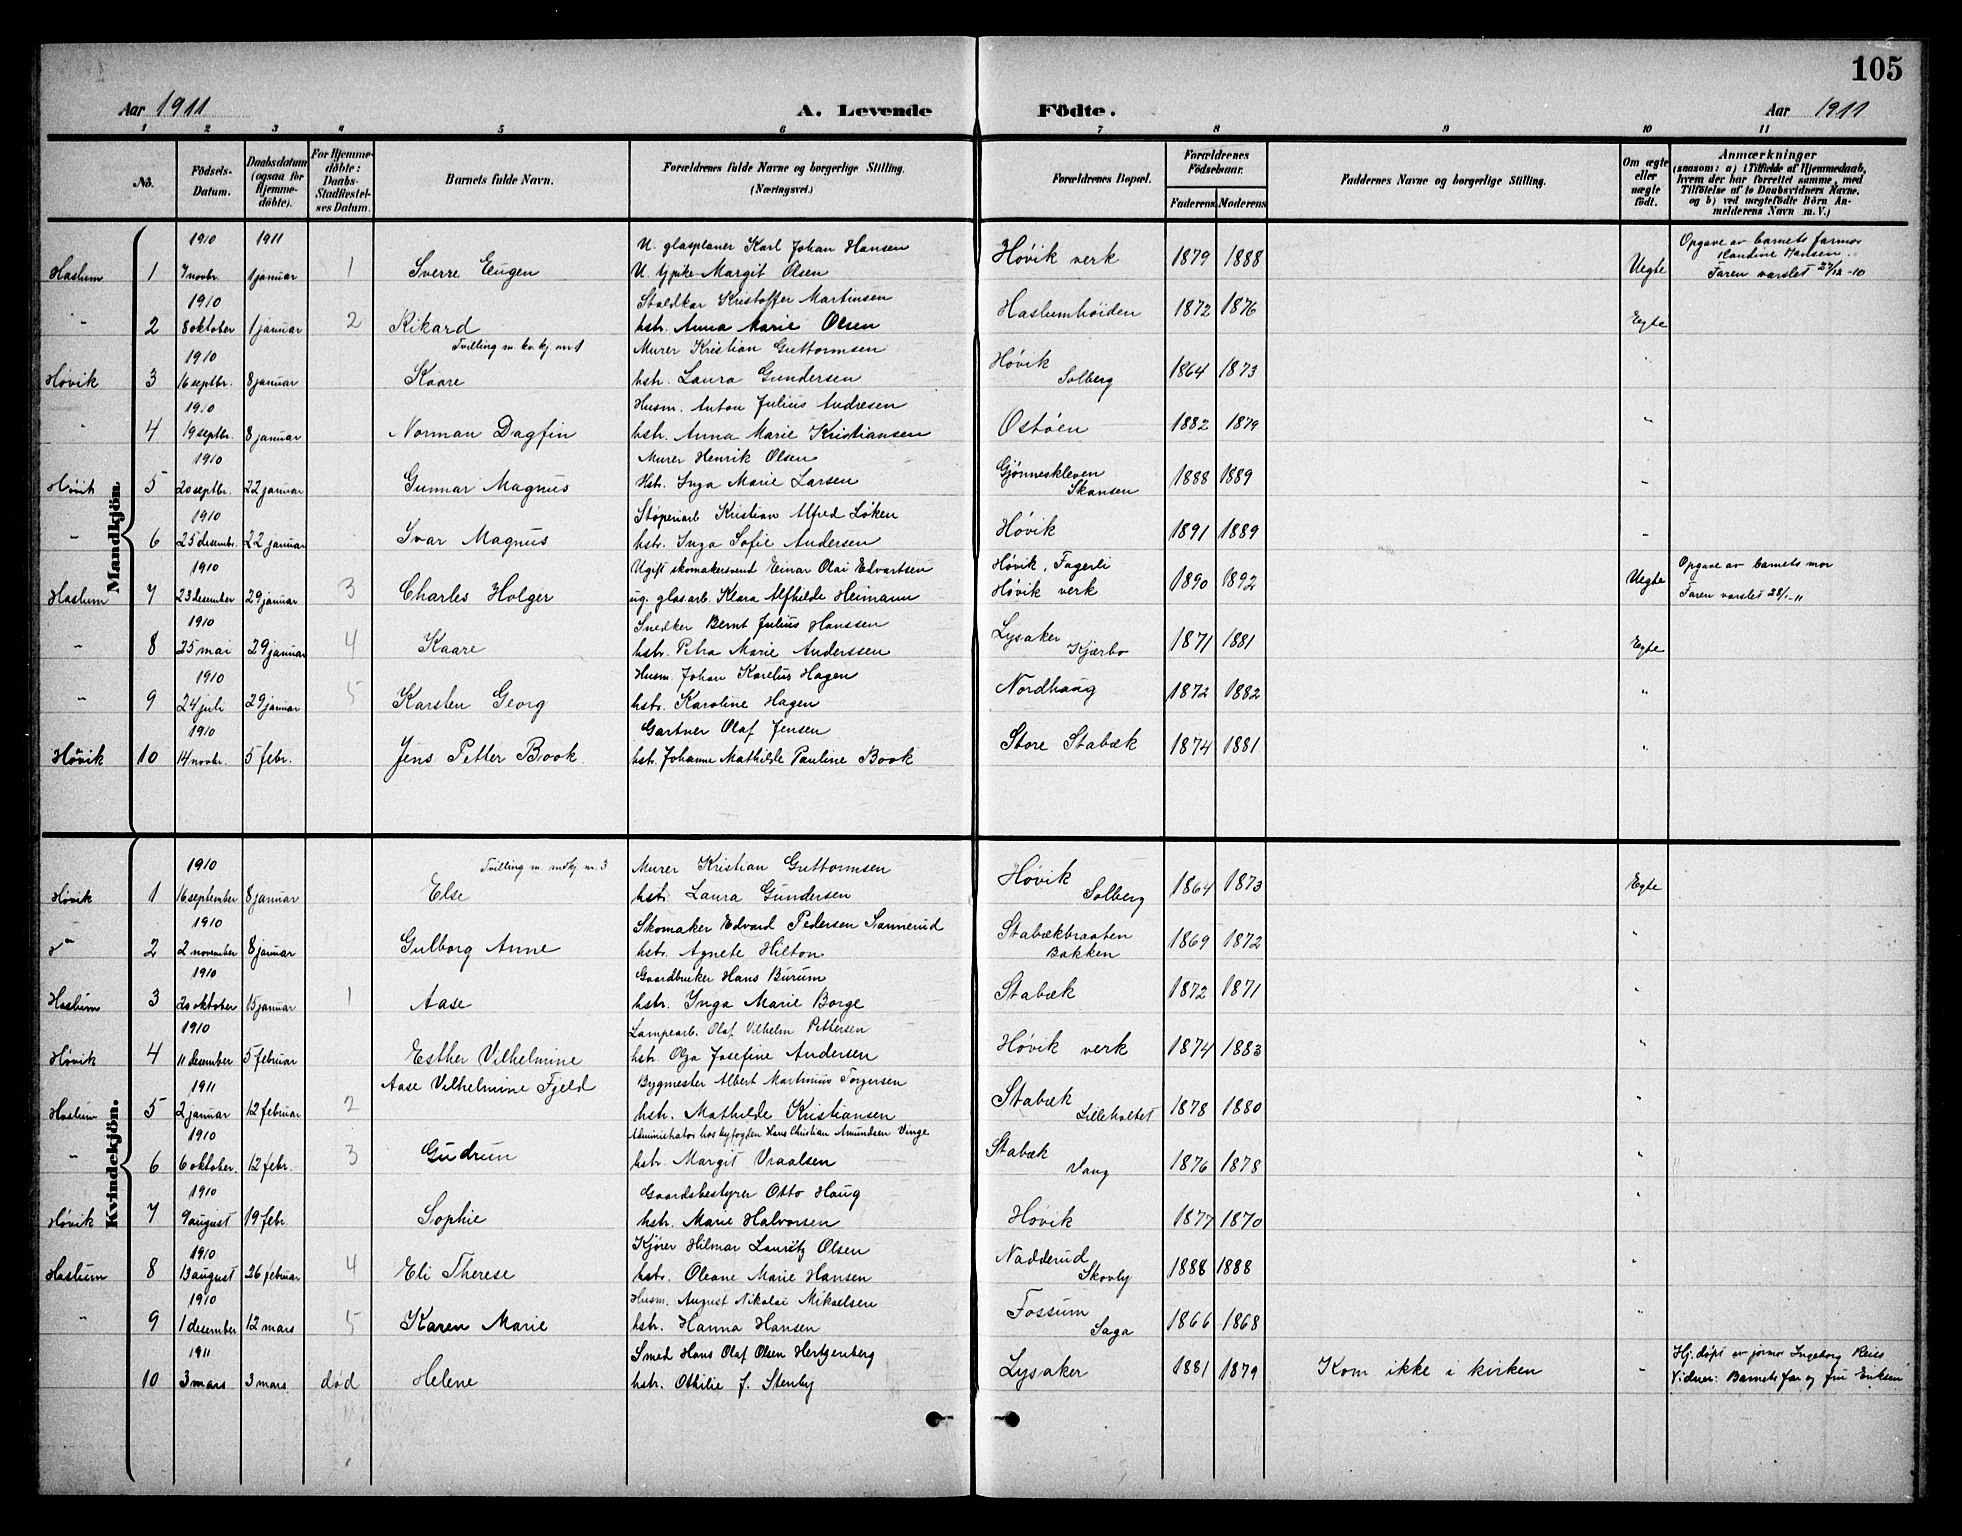 105
Aar 1911 A. Levende Födte. Aar 1911
1 2 3 4 5 6 7 8 9 10 11
No. Födsels-Datum. Daabsdatum (ogsaa for Hjemme-döbte). For Hjemme-döbte: Daabs-Stadfæstel-ses Datum. Barnets fulde Navn. Forældrenes fulde Navne og borgerlige Stilling. (Næringsvei.) Forældrenes Bopæl. Forældrenes Födselsaar. Faderens Moderens Faddernes Navne og borgerlige Stilling. Om ægte eller uægte födt. Anmærkninger
(saasom: a) i Tilfælde af Hjemmedaab, hvem der har forrettet samme, med Tilföielse af to Daabsvidners Navne, og b) ved uægtefödte Börn An-melderens Navn m. V.)
Mandkjön.
1910 1911 U. glaspläner Karl Johan Hansen Opgave av barnets farmor
Haslum 1 7 novbr. 1 januar 1 Sverre Eugen U. Margit Olsen Høvik verk 1879 1888 Uegte Hansen. Faren varslet 27/12-10
1910 Staldkar Kristoffer Martinsen
" 2 8 oktober 1 januar 2 Rikard hstr. Anna Marie Olsen Haslumhöiden 1872 1876 Egte
1910 Tvilling m. kv. kj. nr 1 Murer Kristian Guttormsen
Høvik 3 16 septbr. 8 januar Kaare hstr. Laura Gundersen Høvik Solberg 1864 1873 "
1910 Husm. Anton Julius Andresen
" 4 19 septbr. 8 januar Norman Dagfin hstr. Anna Marie Kristiansen Ostøen 1882 1879 "
1910 Murer Henrik Olsen
Høvik 5 20 septbr. 22 januar Gunnar Magnus Hstr. Inga Marie Larsen Gjønneskleven Skansen 1888 1889 "
1910 Støperiarb Kristian Alfred Løken
" 6 25 desembr. 22 januar Ivar Magnus hstr. Inga Sofie Andersen Høvik 1891 1889 "
1910 Ugift skomakersvend Einar Olai Edvartsen Høvik, Fagerli Opgave av barnets mor
Haslum 7 23 desember 29 januar 3 Charles Holger ug. glasarb. Klara Alfhilde Heimann Høvik verk 1890 1892 Uegte Faren varslet 28/1-11
1910 Snedker Bernt Julius Hanssen
" 8 25 mai 29 januar 4 Kaare hstr. Petra Marie Anderssen Lysaker Kjærbo 1871 1881 Egte
1910 Husm. Johan Karelius Hagen
" 9 24 juli 29 januar 5 Karsten Georg hstr. Karoline Hagen Nordhaug 1872 1882 "
1910 Gartner Olaf Jensen
Høvik 10 14 novbr. 5 febr. Jens Petter Book hstr. Johanne Mathilde Pauline Book Store Stabæk 1874 1881 "
Kvindekjön.
1910 Tvilling m. mdkj. nr. 3 Murer Kristian Guttormsen
Høvik 1 16 september 8 januar Else hstr. Laura Gundersen Høvik Solberg 1864 1873 Egte
1910 Skomaker Edvard Pedersen Sannerud
" 2 2 november 8 januar Gulborg Anne hstr. Agnete Hilton Stabækbraaten Bakken 1869 1872 "
1910 Gaardbruker Hans Burum
Haslum 3 20 oktober 15 januar 1 Aase hstr. Inga Marie Borge Stabæk 1872 1871 "
1910 Lampearb. Olaf Vilhelm Pettersen
Høvik 4 11 desember 5 februar Esther Vilhelmine hstr Olga Josefine Andersen Høvik verk 1874 1883 "
1911 Aase Vilhelmine Fjeld Bygmester Albert Martinius Torgersen
Haslum 5 2 januar 12 februar 2 hstr. Mathilde Kristiansen Stabæk Lilleholtet 1878 1880 "
1910 Administrator hos byfogden Hans Christian Amundsen Vinge
" 6 6 oktober. 12 febr. 3 Gudrun hstr. Margit Vraalsen Stabæk Vang 1876 1878 "
1910 Gaardsbestyrer Otto Haug
Høvik 7 9 august 19 febr. Sophie hstr. Marie Halvorsen Høvik 1877 1870 "
1910 Kjører Hilmar Lauritz Olsen
Haslum 8 13 august 26 februar 4 Eli Therese hstr. Oleane Marie Hansen Nadderud Skovly 1888 1888 "
1910 Husm. August Nikolai Mikaelsen
" 9 1 desember 12 mars 5 Karen Marie hstr. Hanna Hansen Fossum Saga 1866 1868 "
1911 Smed Hans Olaf Olsen Hertzenberg Hj. døpt av jormor Ingeborg Reiss
10 3 mars 3 mars. død Helene hstr. Othilie J. Stenby Lysaker 1881 1879 Kom ikke i kirken " Vidner: Barnets far og fru Eriksen